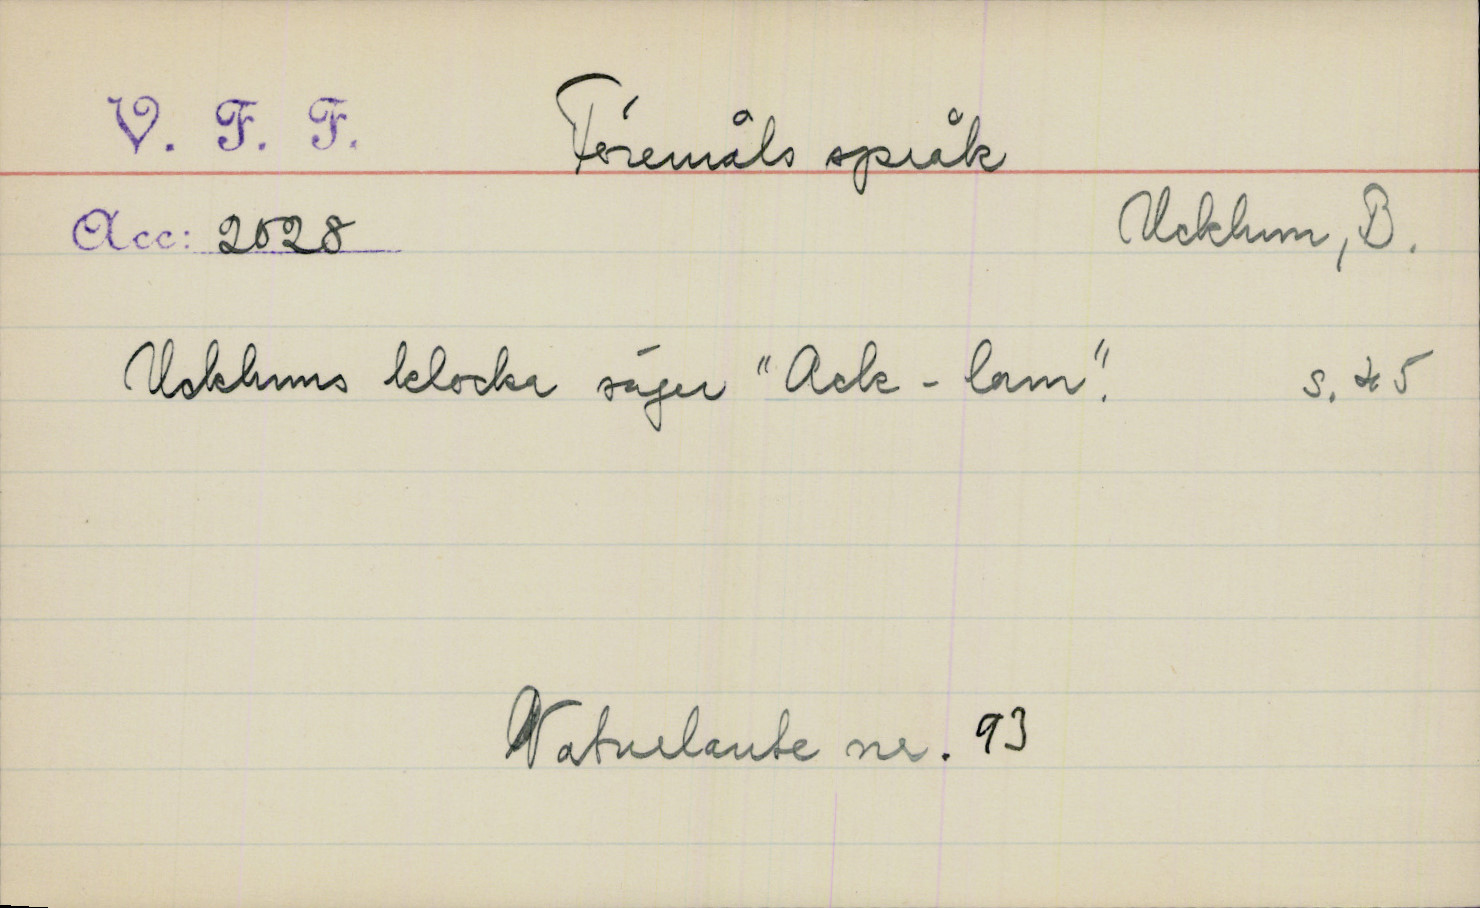 V. F. F.
Föremåls språk
Acc: 2028
Ucklum, B.
Ucklums klocka säger "Ack - lam".
s. 45
Naturlaute nr. 93